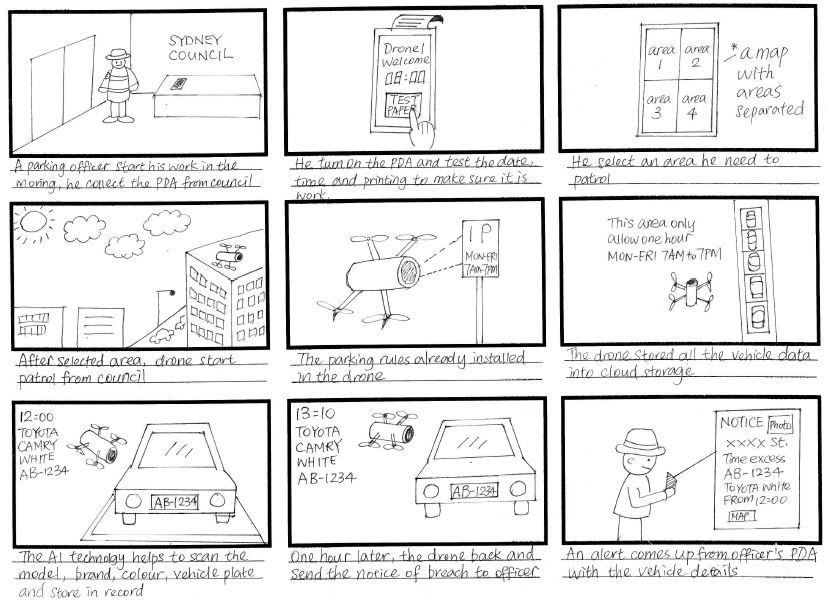 SYDNEY
COUNCIL
A parking officer start his work in the
moring, he collect the PDA from council
Drone1
Welcome
08:00
TEST
PAPER
He turn on the PDA and test the date,
time and printing to make sure it is
work.
area
1
area
2
area
3
area
4
* a map
with
areas
separated
He select an area he need to
patrol
After selected area, drone start
patrol from council
1P
MON-FRI
7AM-7PM
The parking rules already installed
in the drone
This area only
allow one hour
MON-FRI 7AM to 7PM
The drone stored all the vehicle data
into cloud storage
12:00
TOYOTA
CAMRY
WHITE
AB-1234
AB-1234
The AI technology helps to scan the
model, brand, colour, vehicle plate
and store in record
13:10
TOYOTA
CAMRY
WHITE
AB-1234
AB-1234
One hour later, the drone back and
send the notice of breach to officer
NOTICE Photo
XXXX St.
Time excess
AB-1234
TOYOTA White
FROM 12:00
MAP
An alert comes up from officer's PDA
with the vehicle details